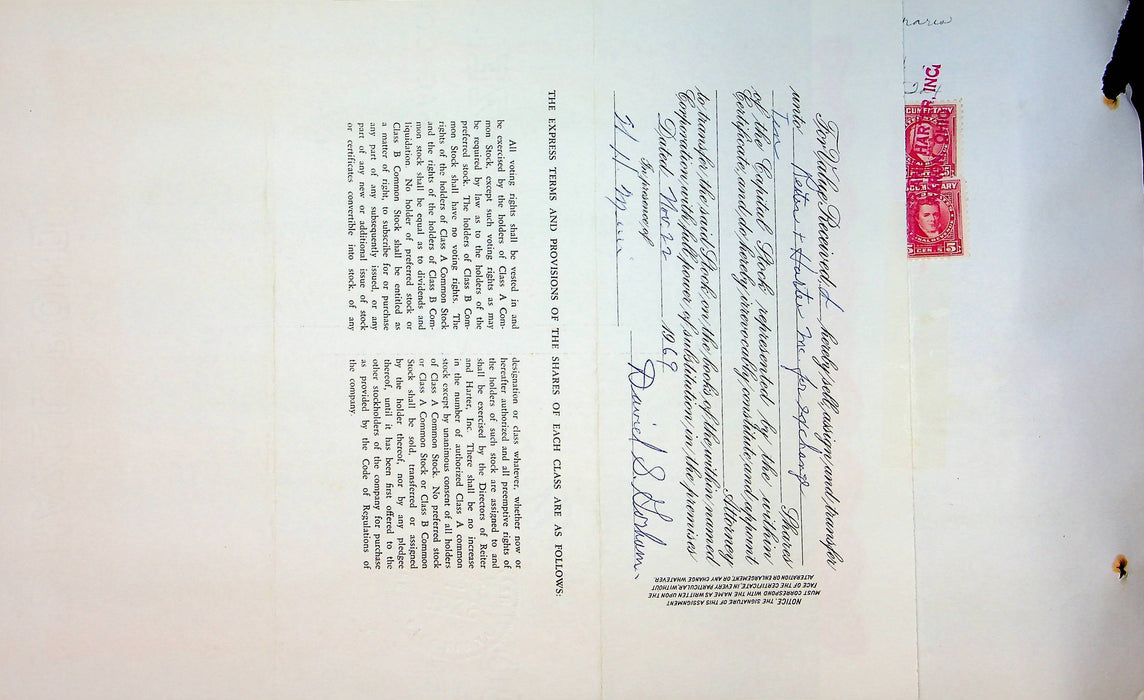 For Value Received, I hereby sell, assign and transfer
unto Reiter & Harter Inc for exchange
Ten Shares
of the Capital Stock represented by the within
Certificate, and do hereby irrevocably constitute and appoint
Attorney
to transfer the said Stock on the books of the within named
Corporation with full power of substitution in the premises
Dated Nov 22 1969
In presence of
David S. Gorlum.
NOTICE. THE SIGNATURE OF THIS ASSIGNMENT
MUST CORRESPOND WITH THE NAME AS WRITTEN UPON THE
FACE OF THE CERTIFICATE, IN EVERY PARTICULAR, WITHOUT
ALTERATION OR ENLARGEMENT, OR ANY CHANGE WHATEVER.
THE EXPRESS TERMS AND PROVISIONS OF THE SHARES OF EACH CLASS ARE AS FOLLOWS:
All voting rights shall be vested in and
be exercised by the holders of Class A Com-
mon Stock, except such voting rights as may
be required by law as to the holders of the
preferred stock. The holders of Class B Com-
mon Stock shall have no voting rights. The
rights of the holders of Class A Common Stock
and the rights of the holders of Class B Com-
mon stock shall be equal as to dividends and
liquidation. No holder of preferred stock or
Class B Common Stock shall be entitled as
a matter of right, to subscribe for or purchase
any part of any subsequently issued, or any
part of any new or additional issue of stock
or certificates convertible into stock of any
designation or class whatever, whether now or
hereafter authorized and all preemptive rights of
the holders of such stock are assigned to and
shall be exercised by the Directors of Reiter
and Harter, Inc. There shall be no increase
in the number of authorized Class A common
stock except by unanimous consent of all holders
of Class A Common Stock. No preferred stock
or Class A Common Stock or Class B Common
Stock shall be sold, transferred or assigned
by the holder thereof, nor by any pledgee
thereof, until it has been first offered to the
other stockholders of the company for purchase
as provided by the Code of Regulations of
the company.